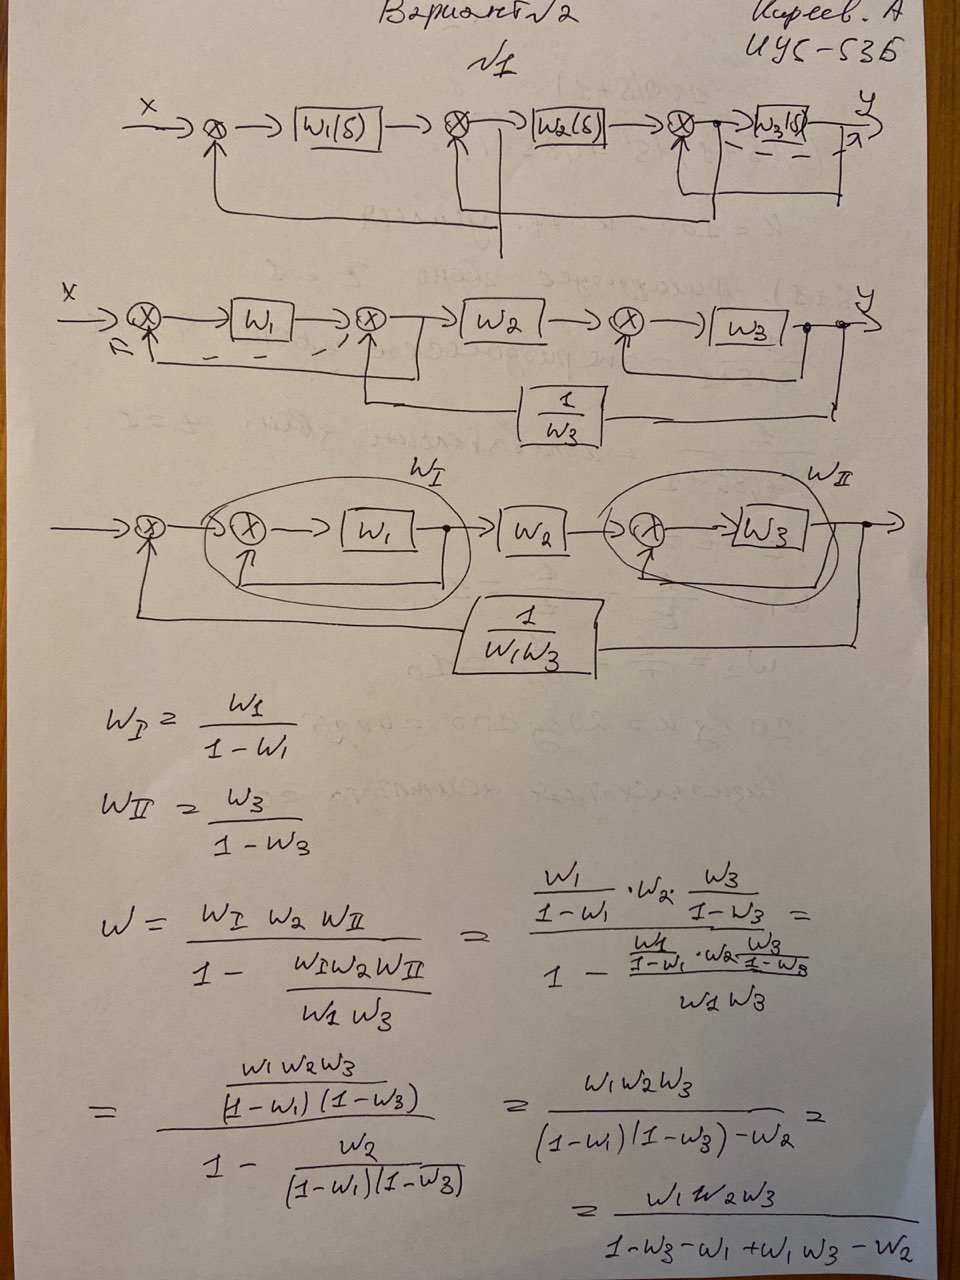 Вариант №2
Киреев. А
ИУ5-53Б
№1
x → ⊗ → W1(S) → ⊗ → W2(S) → ⊗ → W3(S) → y
x → ⊗ → W1 → ⊗ → W2 → ⊗ → W3 → y
1/W3
WI WII
⊗ → ⊗ → W1 → W2 → ⊗ → W3
1/(W1W3)
WI = W1/(1-W1)
WII = W3/(1-W3)
W = (WI W2 WII)/(1 - (WIW2WII)/(W1 W3)) = (W1/(1-W1) · W2 · W3/(1-W3))/(1 - (W1/(1-W1) · W2 · W3/(1-W3))/(W1 W3)) =
= (W1W2W3/((1-W1)(1-W3)))/(1 - W2/((1-W1)(1-W3))) = W1W2W3/((1-W1)(1-W3)-W2) =
= W1W2W3/(1-W3-W1+W1W3-W2)